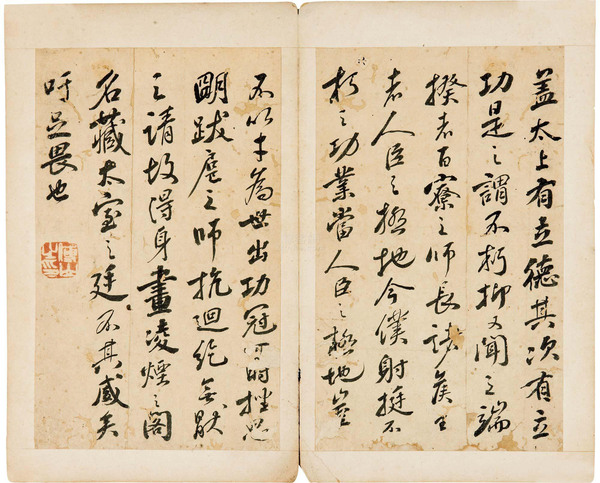 盖太上有立德其次有立
功是之謂不朽抑又聞之端
揆者百寮之師長諸侯王
者人臣之極地今僕射挺不
朽之功業當人臣之極地豈
不以才為世出功冠一時挫思
明跋扈之師抗迴紇無厭
之請故得身畫凌煙之閣
名藏太室之廷不其盛矣
吁足畏也
傅山之印